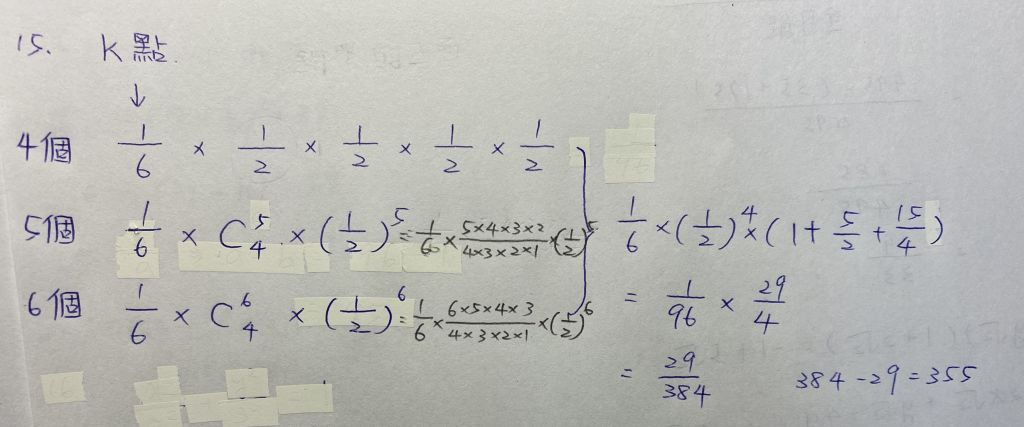 15. K點.
↓
4個 1/6 × 1/2 × 1/2 × 1/2 × 1/2
5個 1/6 × C⁵₄ × (1/2)⁵ = 1/6 × 5×4×3×2/4×3×2×1 × (1/2)⁵
6個 1/6 × C⁶₄ × (1/2)⁶ = 1/6 × 6×5×4×3/4×3×2×1 × (1/2)⁶
1/6 × (1/2)⁴ × (1 + 5/2 + 15/4)
= 1/96 × 29/4
= 29/384
384 - 29 = 355